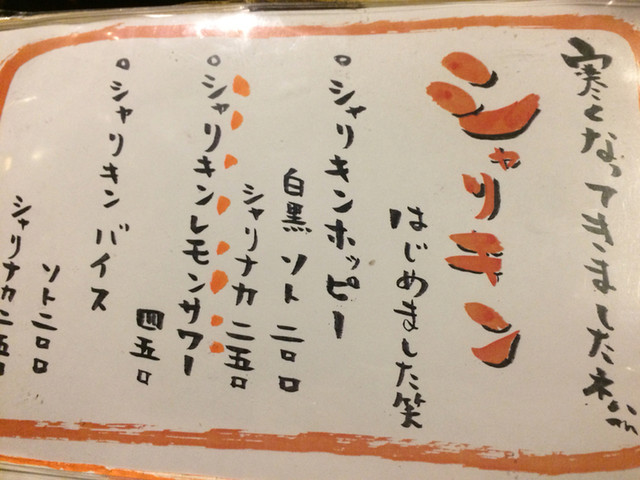 寒くなってきましたネ
シャリキン
はじめました笑
シャリキンホッピー
白黒 ソト 二〇〇
シャリナカ 二五〇
シャリキンレモンサワー
四五〇
シャリキンバイス
ソト二〇〇
シャリナカ二五〇